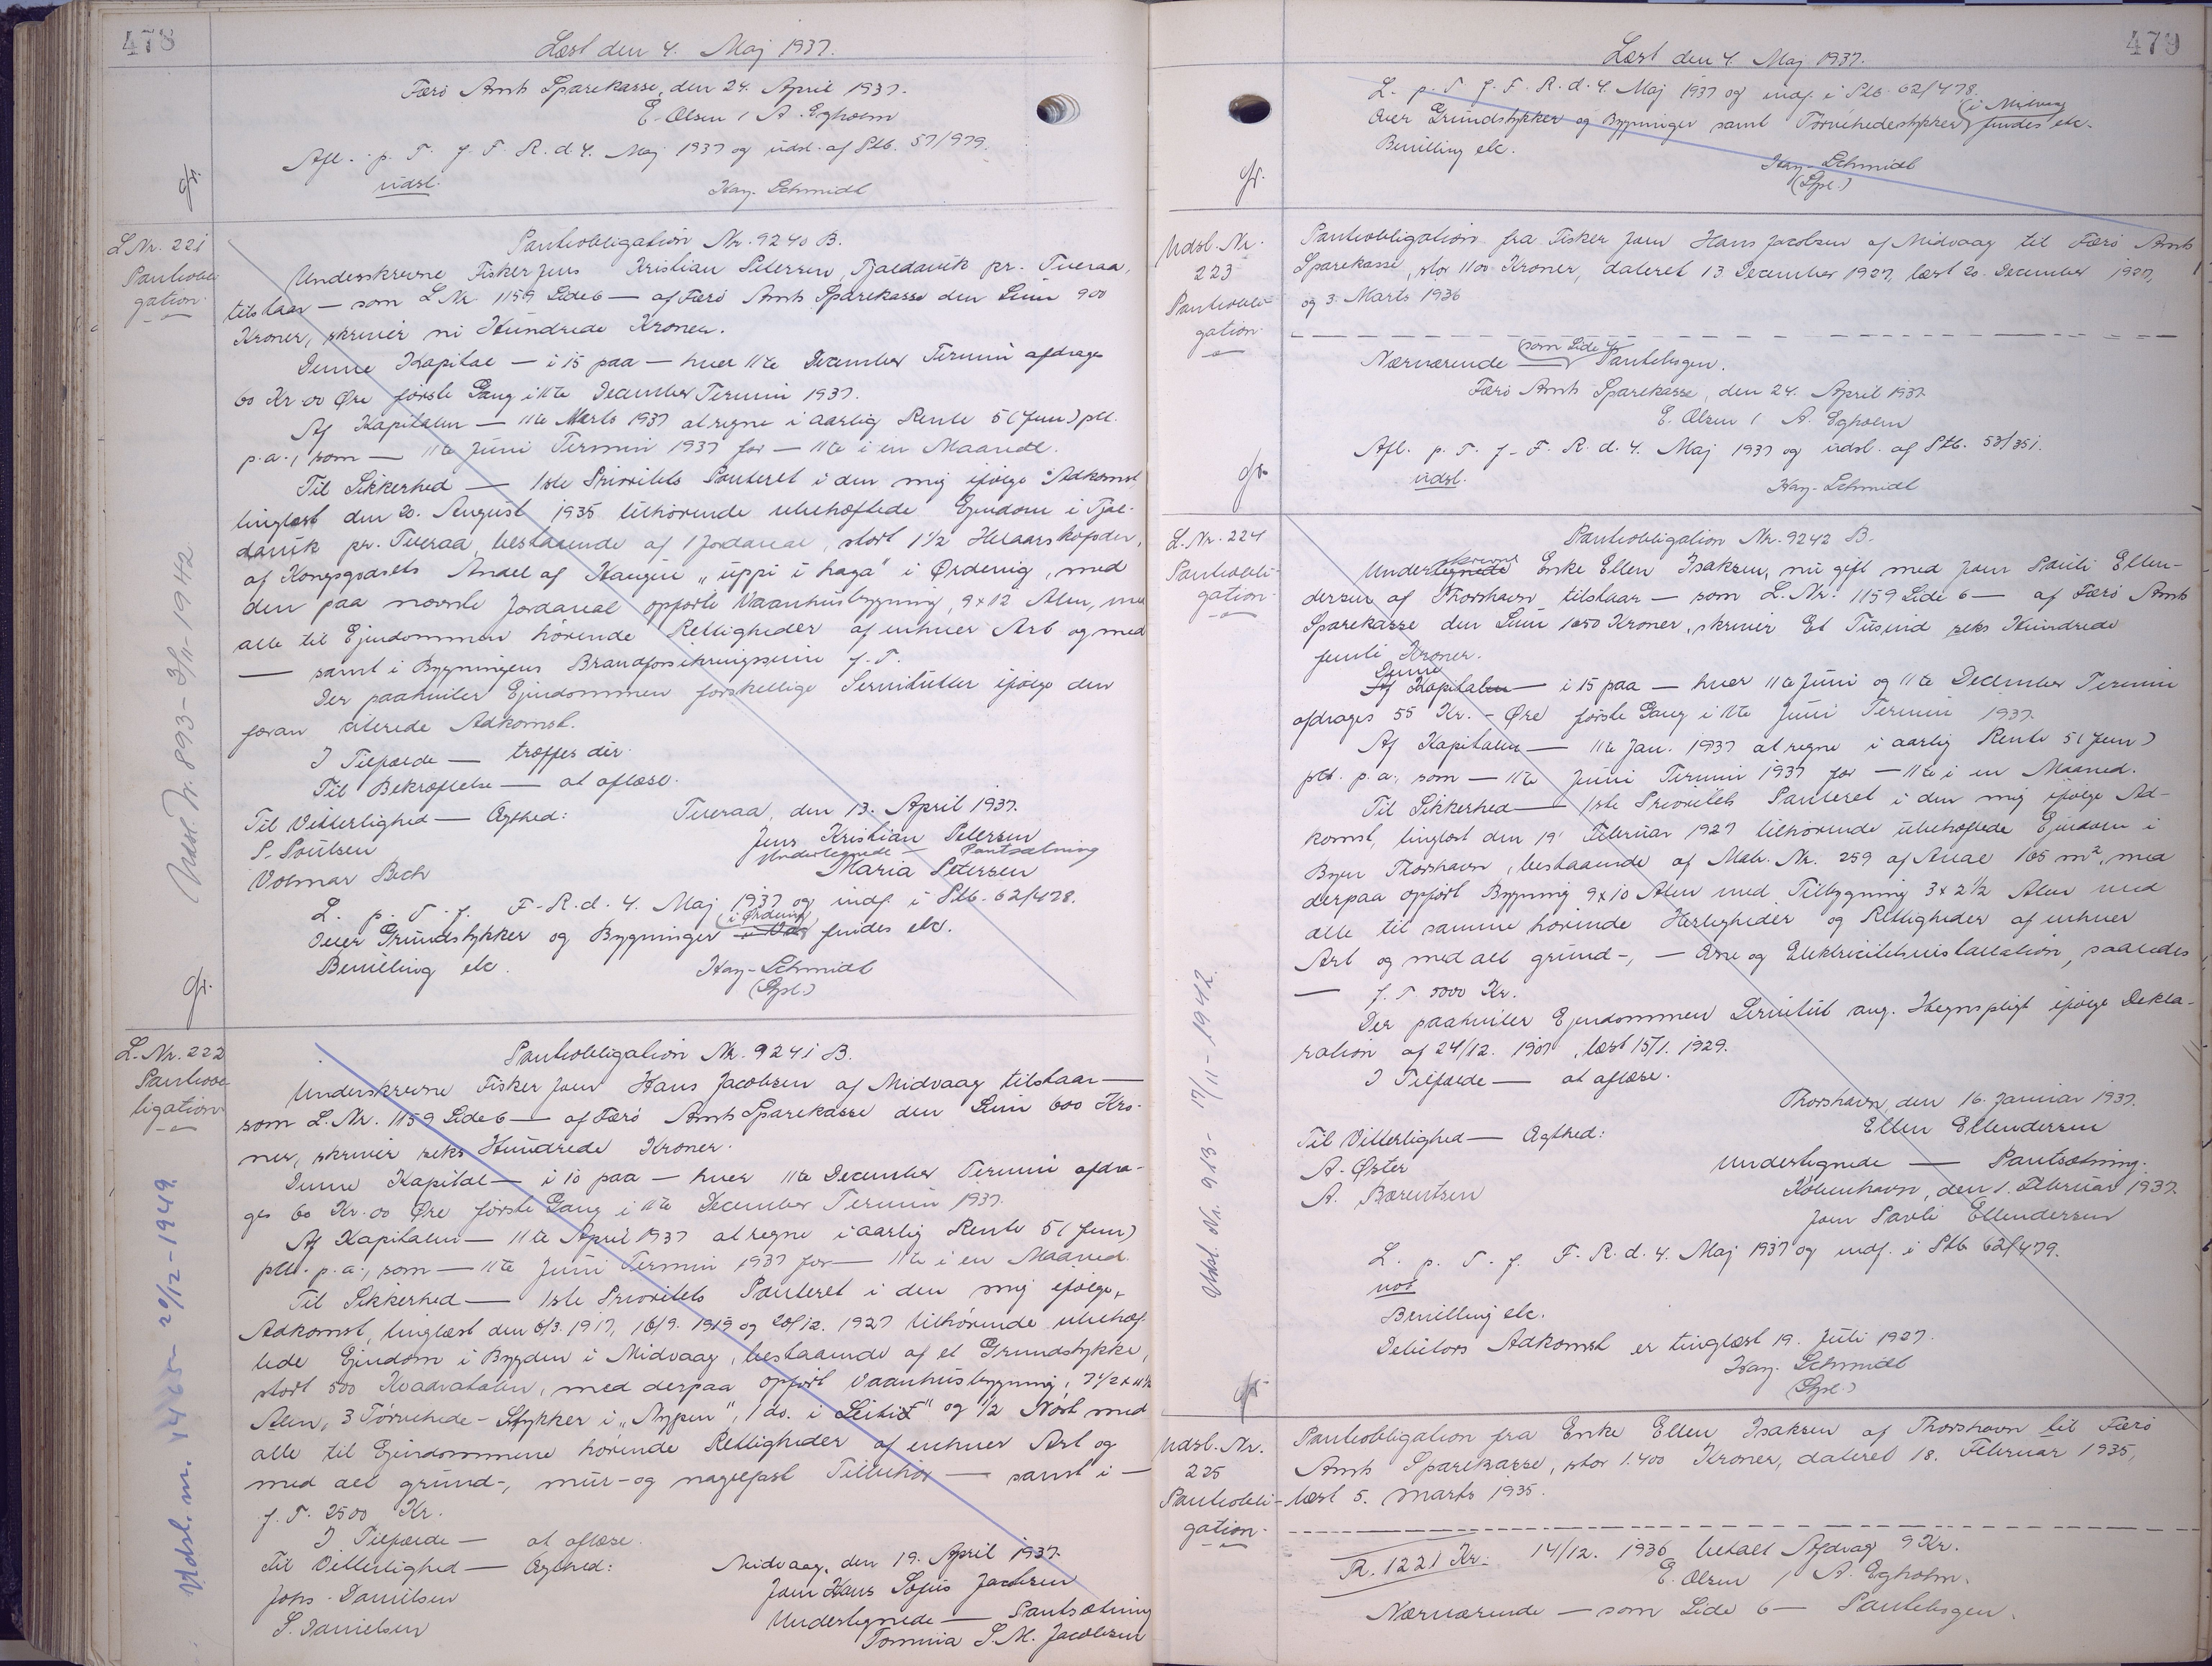 478
Læst den 4. Maj 1937.
Færø Amts Sparekasse, den 24. April 1937.
E. Olsen / A. Egholm
Afl. p. T. f. F. R. d. 4. Maj 1937 og udsl. af Ptb. 57/979.
udsl.
Kay-Schmidt
gr.
L.Nr. 221
Panteobli
gation.
Panteobligation Nr. 9240 B.
Underskrevne Fisker Jens Kristian Petersen, Tjaldavik pr. Tveraa,
tilstaar — som L.Nr. 1159 Side 6 — af Færø Amts Sparekasse den Sum 900
Kroner, skriver ni Hundrede Kroner.
Denne Kapital — i 15 paa — hver 11te December Termin afdrages
60 Kr 00 Øre første Gang i 11te December Termin 1937.
Af Kapitalen — 11te Marts 1937 at regne i aarlig Rente 5 (fem) pCt.
p.a., som — 11te Juni Termin 1937 for — 11te i en Maaned.
Til Sikkerhed — 1ste Prioritets Panteret i den mig ifølge Adkomst
tinglæst den 20. August 1935 tilhørende ubehæftede Ejendom i Tjal-
davik pr. Tveraa, bestaaende af 1 Jordareal, stort 1½
af Kongsgodsets Andel af Haugen „uppi i haga" i Ørdevig, med
den paa nævnte Jordareal opførte Vaaningsbygning, 9 x 12 Alen, med
alle til Ejendommen hørende Rettigheder af enhver Art og med
— samt i Bygningens Brandforsikringssum f. T.
Der paahviler Ejendommen forskellige Servitutter ifølge den
foran citerede Adkomst.
I Tilfælde — træffes der.
Til Bekræftelse — at aflæse.
Til Vitterlighed — Ægthed:
Tveraa, den 13. April 1937.
P. Poulsen
Jens Kristian Petersen
Volmar Bech
Undertegnede — Pantsætning
Maria Petersen
L. p. T. f. F. R. d. 4. Maj 1937 og indf. i Ptb. 62/478.
i Ørdevig
Over Grundstykker og Bygninger findes etc.
Bevilling etc.
Kay-Schmidt
(Spl.)
gr.
Udsl. Nr. 893 - 3/11 - 1942
L.Nr. 222
Panteob
ligation
Panteobligation Nr. 9241 B.
Underskrevne Fisker Joen Hans Jacobsen af Midvaag tilstaar —
som L.Nr. 1159 Side 6 — af Færø Amts Sparekasse den Sum 600 Kro-
ner, skriver seks Hundrede Kroner.
Denne Kapital — i 10 paa — hver 11te December Termin afdra-
ges 60 Kr. 00 Øre første Gang i 11te December Termin 1937.
Af Kapitalen — 11te April 1937 at regne i aarlig Rente 5 (fem)
pCt. p.a., som — 11te Juni Termin 1937 for — 11te i en Maaned.
Til Sikkerhed — 1ste Prioritets Panteret i den mig ifølge
Adkomst, tinglæst den 6/3. 1917, 16/9. 1919 og 20/12. 1927 tilhørende ubehæf-
tede Ejendom i Bygden i Midvaag, bestaaende af et Grundstykke,
stort 500 Kvadratalen, med derpaa opført Vaaningsbygning, 7½ x 11½
Alen, 3 Tørvehede-Stykker i „Nypen", 1 do. i „Leitid" og ½ Nøst med
alle til Ejendommene hørende Rettigheder af enhver Art og
med alt grund-, mur- og nagelfast Tilbehør — samt i —
f. T. 2500 Kr.
I Tilfælde — at aflæse.
Til Vitterlighed — Ægthed:
Midvaag, den 19. April 1937.
Johs. Danielsen
Joen Hans Sofus Jacobsen
S. Danielsen
Undertegnede — Pantsætning
Tomina S. M. Jacobsen
Udsl. nr. 4465 - 20/12 - 1949.
479
Læst den 4. Maj 1937.
L. p. T. f. F. R. d. 4. Maj 1937 og indf. i Ptb. 62/478.
i Midvaag
Over Grundstykker og Bygninger samt Tørvehedestykker findes etc.
Bevilling etc.
Kay-Schmidt
(Spl.)
gr.
Udsl. Nr.
223
Panteobli-
gation.
Panteobligation fra Fisker Joen Hans Jacobsen af Midvaag til Færø Amts
Sparekasse, stor 1100 Kroner, dateret 13 December 1927, læst 20. December 1927,
og 3. Marts 1936
Nærværende — som Side 4 — Pantebogen.
Færø Amts Sparekasse, den 24. April 1937
E. Olsen / A. Egholm
Afl. p. T. f. F. R. d. 4. Maj 1937 og udsl. af Ptb. 53/351.
udsl.
Kay-Schmidt
gr.
L.Nr. 224
Panteobli-
gation.
Panteobligation Nr. 9242 B.
Underskrevne Enke Ellen Isaksen, nu gift med Joen Pauli Ellen-
dersen af Thorshavn tilstaar — som L.Nr. 1159 Side 6 — af Færø Amts
Sparekasse den Sum 1650 Kroner, skriver Et Tusind seks Hundrede
femti Kroner.
Denne Kapital — i 15 paa — hver 11te Juni og 11te December Termin
afdrages 55 Kr. - Øre første Gang i 11te Juni Termin 1937.
Af Kapitalen — 11te Jan. 1937 at regne i aarlig Rente 5 (fem)
pCt. p.a., som — 11te Juni Termin 1937 for — 11te i en Maaned.
Til Sikkerhed — 1ste Prioritets Panteret i den mig ifølge Ad-
komst, tinglæst den 19' Februar 1927 tilhørende ubehæftede Ejendom i
Byen Thorshavn, bestaaende af Matr. Nr. 259 af Areal 165 m², med
derpaa opført Bygning 9 x 10 Alen med Tilbygning 3 x 2½ Alen med
alle til samme hørende Herligheder og Rettigheder af enhver
Art og med alt grund-, — Øse og Elektricitetsinstallation, saaledes
— f. T. 5000 Kr.
Der paahviler Ejendommen Servitut ang. Hegnspligt ifølge Dekla-
ration af 24/12. 1907, læst 15/1. 1929.
I Tilfælde — at aflæse.
Thorshavn, den 16. Januar 1937.
Til Vitterlighed — Ægthed:
Ellen Ellendersen
A. Øster
Undertegnede — Pantsætning.
A. Bærentsen
København, den 1. Februar 1937.
Joen Pauli Ellendersen
L. p. T. f. F. R. d. 4. Maj 1937 og indf. i Ptb 62/479.
Bevilling etc.
Debitors Adkomst er tinglæst 19. Juli 1927.
Kay. Schmidt
(Spl.)
gr.
Udsl. Nr. 913 - 17/11 - 1942.
Udsl. Nr.
225
Panteobli-
gation.
Panteobligation fra Enke Ellen Isaksen af Thorshavn til Færø
Amts Sparekasse, stor 1.400 Kroner, dateret 18. Februar 1935,
læst 5. Marts 1935.
R. 1221 Kr. 14/12. 1936 betalt Afdrag 9 Kr.
E. Olsen / A. Egholm.
Nærværende — som Side 6 — Pantebogen.